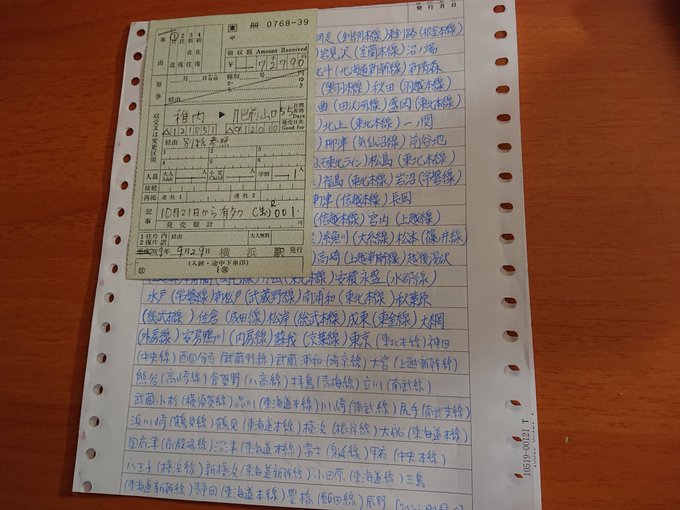 東 冊 0768-39
甲
領収額 Amount Received
¥ 72790
事由
原券
経由
稚内 ▶ 肥前山口 55
Days
Good for
経由 別紙参照
人員 大人 小児 学割 1人
Child
接続
再掲
記事 10月21日から有効
発売額計
9月29日 横浜駅 発行
(入鋏・途中下車印)
発行月日
走 (釧網本線) 東釧路 (根室本線)
岩見沢 (室蘭本線) 沼ノ端
北斗 (北海道新幹線) 新青森
(奥羽本線) 秋田 (羽越本線)
曲 (田沢湖線) 盛岡 (東北本線)
北上 (東北本線) 一ノ関
柳津 (気仙沼線) 前谷地
石東北ライン) 松島 (東北本線)
福島 (東北本線) 岩沼 (常磐線)
新津 (信越本線) 長岡
(信越本線) 宮内 (上越線)
糸魚川 (大糸線) 松本 (篠ノ井線)
高崎 (上越新幹線) 越後湯沢
安積永盛 (水郡線)
水戸 (常磐線) 新松戸 (武蔵野線) 南浦和 (東北本線) 秋葉原
(総武本線) 佐倉 (成田線) 松岸 (総武本線) 成東 (東金線) 大網
(外房線) 安房鴨川 (内房線) 蘇我 (京葉線) 東京 (東北本線) 神田
(中央線) 西国分寺 (武蔵野線) 武蔵浦和 (埼京線) 大宮 (上越新幹線)
熊谷 (高崎線) 倉賀野 (八高線) 拝島 (青梅線) 立川 (南武線)
武蔵小杉 (横須賀線) 品川 (東海道本線) 川崎 (南武線) 尻手 (南武支線)
浜川崎 (鶴見線) 鶴見 (東海道本線) 横浜 (根岸線) 大船 (東海道本線)
国府津 (御殿場線) 沼津 (東海道本線) 富士 (身延線) 甲府 (中央本線)
八王子 (横浜線) 新横浜 (東海道新幹線) 小田原 (東海道線) 三島
(東海道新幹線) 静岡 (東海道本線) 豊橋 (飯田線) 辰野
10519-00121 T